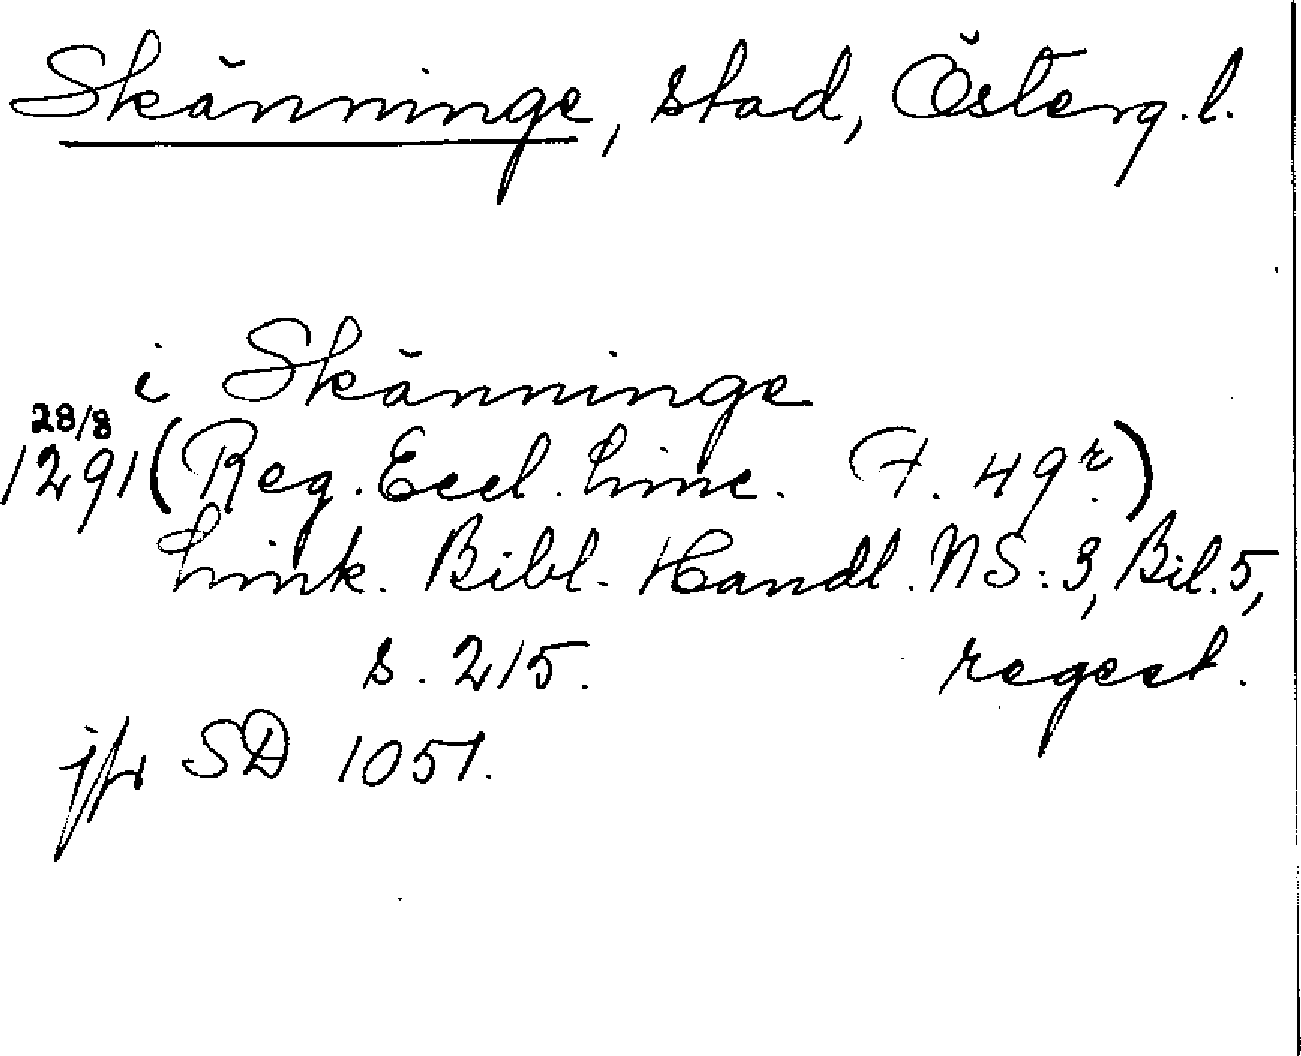 Skänninge, stad, Österg.l.
i Skänninge
28/8
1291 (Reg. Eccl. Linc. F. 49r.)
Link. Bibl. Handl. NS: 3, Bil. 5,
s. 215. regest.
jfr SD 1051.